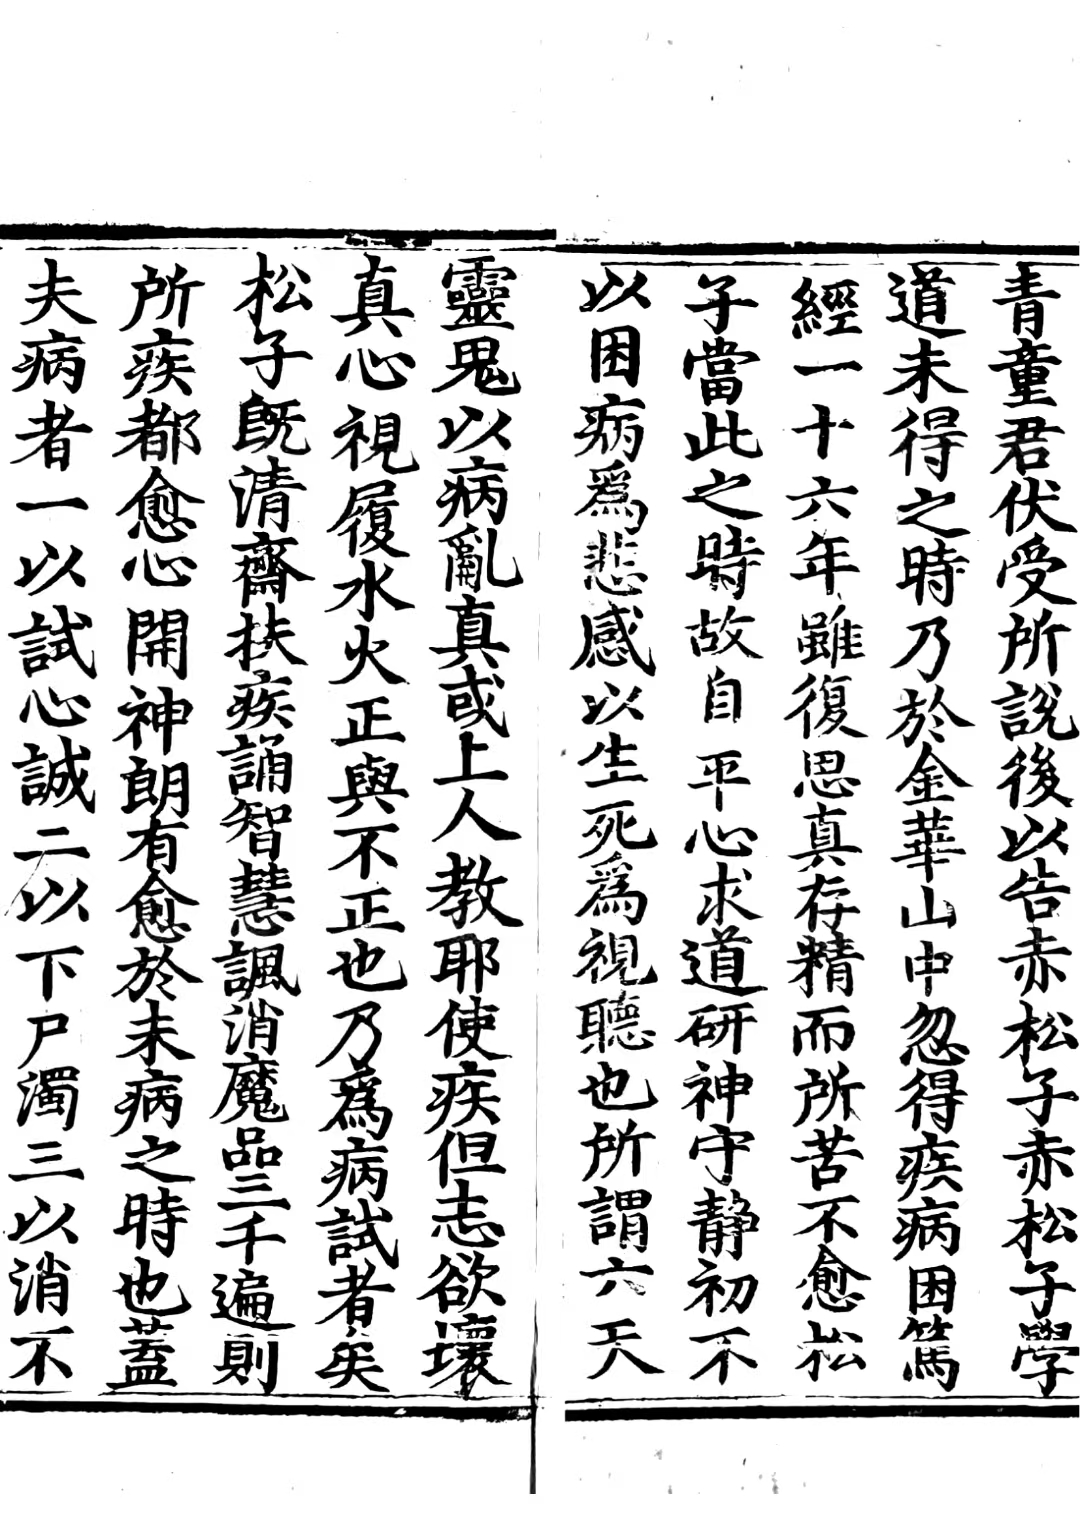 青童君伏受所說後以告赤松子赤松子學
道未得之時乃於金華山中忽得疾病困篤
經一十六年雖復思真存精而所苦不愈松
子當此之時故自平心求道研神守靜初不
以困病為悲感以生死為視聽也所謂六天
靈鬼以病亂真或上人教耶使疾但志欲壞
真心視履水火正與不正也乃為病試者矣
松子既清齋扶疾誦智慧諷消魔品三千遍則
所疾都愈心開神朗有愈於未病之時也蓋
夫病者一以試心誠二以下尸濁三以消不